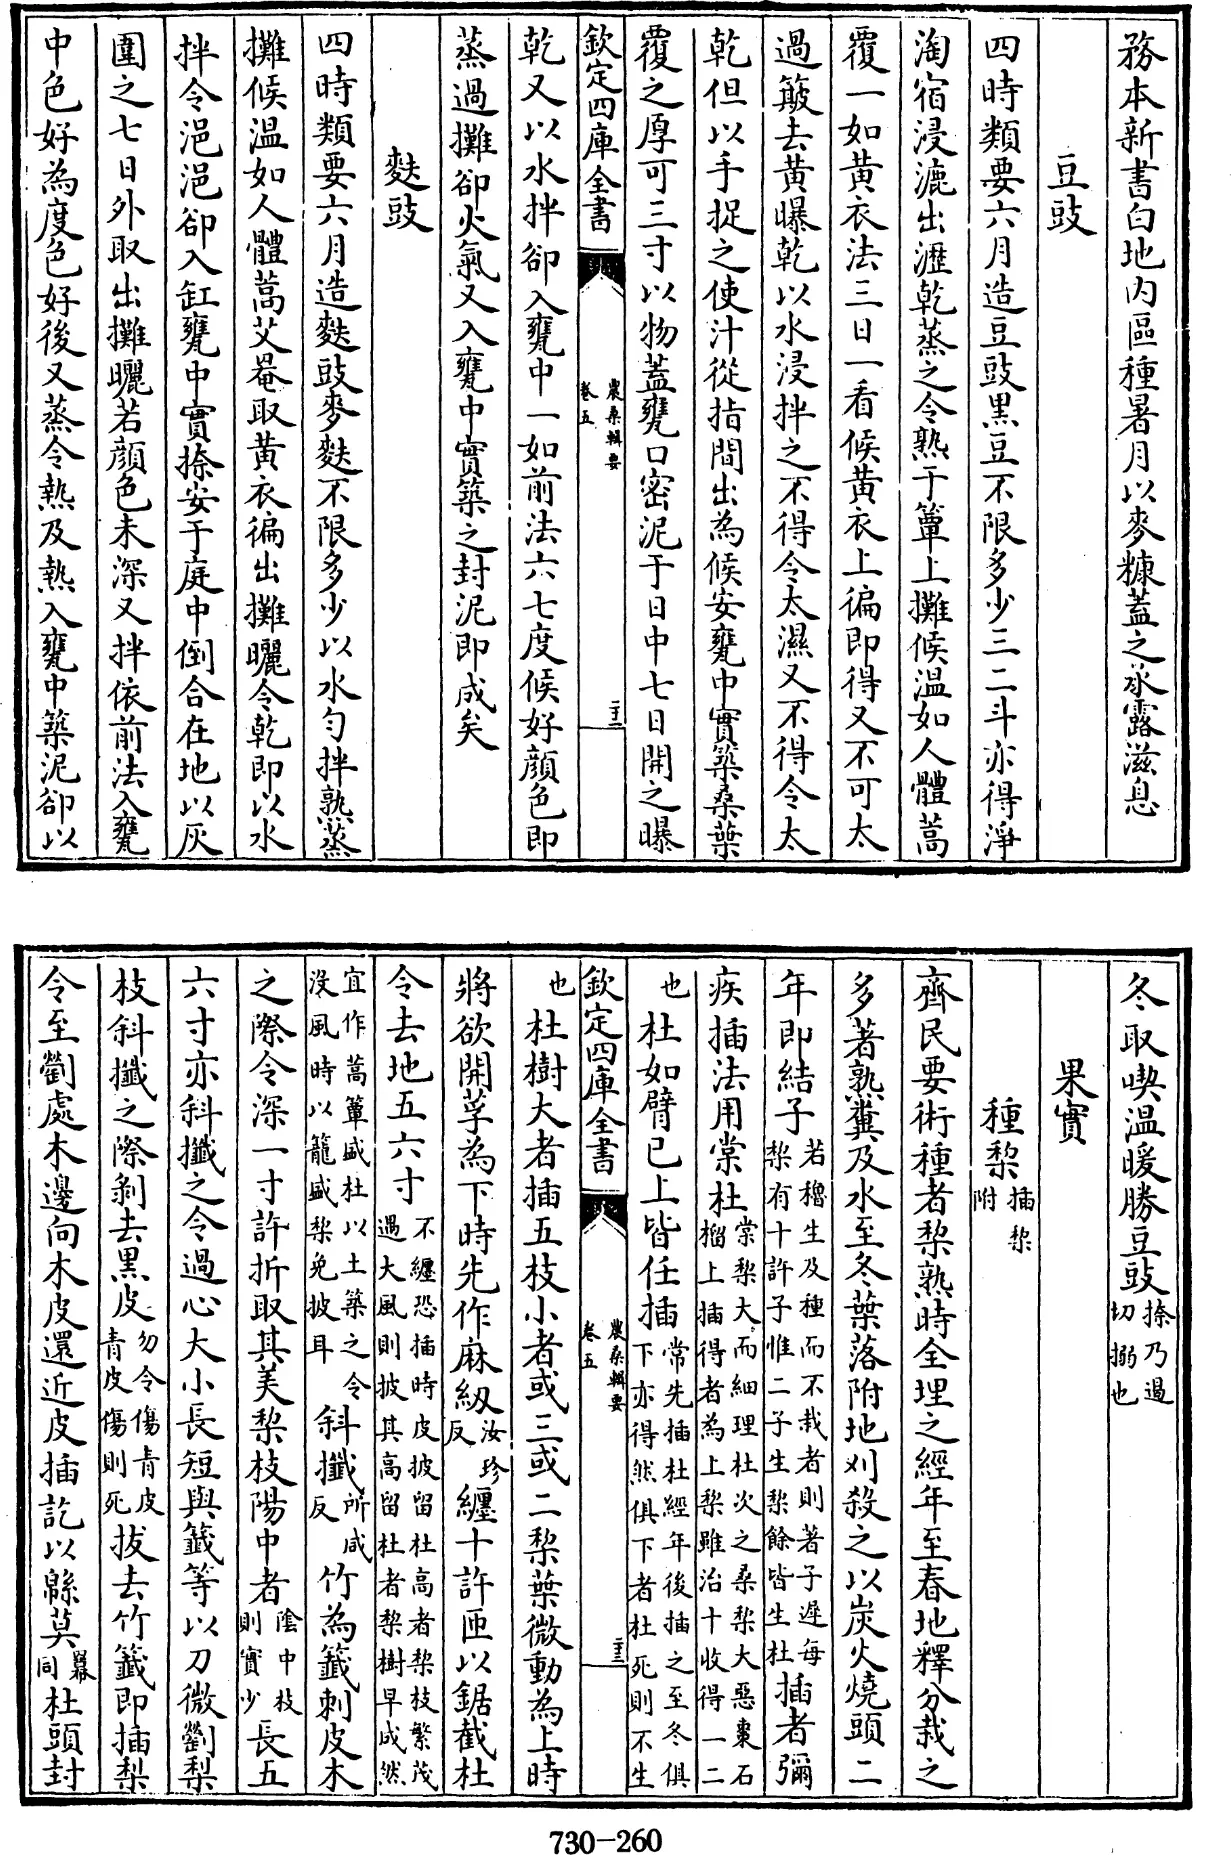 務本新書白地内區種暑月以麥糠蓋之承露滋息
豆豉
四時類要六月造豆豉黒豆不限多少三二斗亦得淨
淘宿浸漉出瀝乾蒸之令熟于簞上攤候温如人體蒿
覆一如黄衣法三日一看候黄衣上徧即得又不可太
過簸去黄曝乾以水浸拌之不得令太濕又不得令太
乾但以手捉之使汁從指間出為候安甕中實築桑葉
覆之厚可三寸以物蓋甕口密泥于日中七日開之曝
欽定四庫全書
農桑輯要
卷五
二十二
乾又以水拌卻入甕中一如前法六七度候好顔色即
蒸過攤卻火氣又入甕中實築之封泥即成矣
麩豉
四時類要六月造麩豉麥麩不限多少以水匀拌熟蒸
攤候温如人體蒿艾罨取黄衣徧出攤曬令乾即以水
拌令浥浥卻入缸甕中實捺安于庭中倒合在地以灰
圍之七日外取出攤曬若顔色未深又拌依前法入甕
中色好為度色好後又蒸令熱及熱入甕中築泥卻以
冬取喫温暖勝豆豉捺乃過
切搦也
果實
種梨插梨
附
齊民要術種者梨熟時全埋之經年至春地釋分栽之
多著熟糞及水至冬葉落附地刈殺之以炭火燒頭二
年即結子若穭生及種而不栽者則著子遲每
梨有十許子惟二子生梨餘皆生杜插者彌
疾插法用棠杜棠梨大而細理杜次之桑梨大惡棗石
榴上插得者為上梨雖治十收得一二
也杜如臂已上皆任插常先插杜經年後插之至冬俱
下亦得然俱下者杜死則不生
欽定四庫全書
農桑輯要
卷五
二十三
也杜樹大者插五枝小者或三或二梨葉微動為上時
將欲開莩為下時先作麻紉汝珍
反纒十許匝以鋸截杜
令去地五六寸不纒恐插時皮披留杜高者梨枝繁茂
遇大風則披其高留杜者梨樹早成然
宜作蒿簞盛杜以土築之令
没風時以籠盛梨免披耳斜攕所咸
反竹為籤刺皮木
之際令深一寸許折取其美梨枝陽中者陰中枝
則實少長五
六寸亦斜攕之令過心大小長短與籤等以刀微劙梨
枝斜攕之際剝去黒皮勿令傷青皮
青皮傷則死拔去竹籤即插梨
令至劙處木邊向木皮還近皮插訖以緜莫羃
同杜頭封
730-260